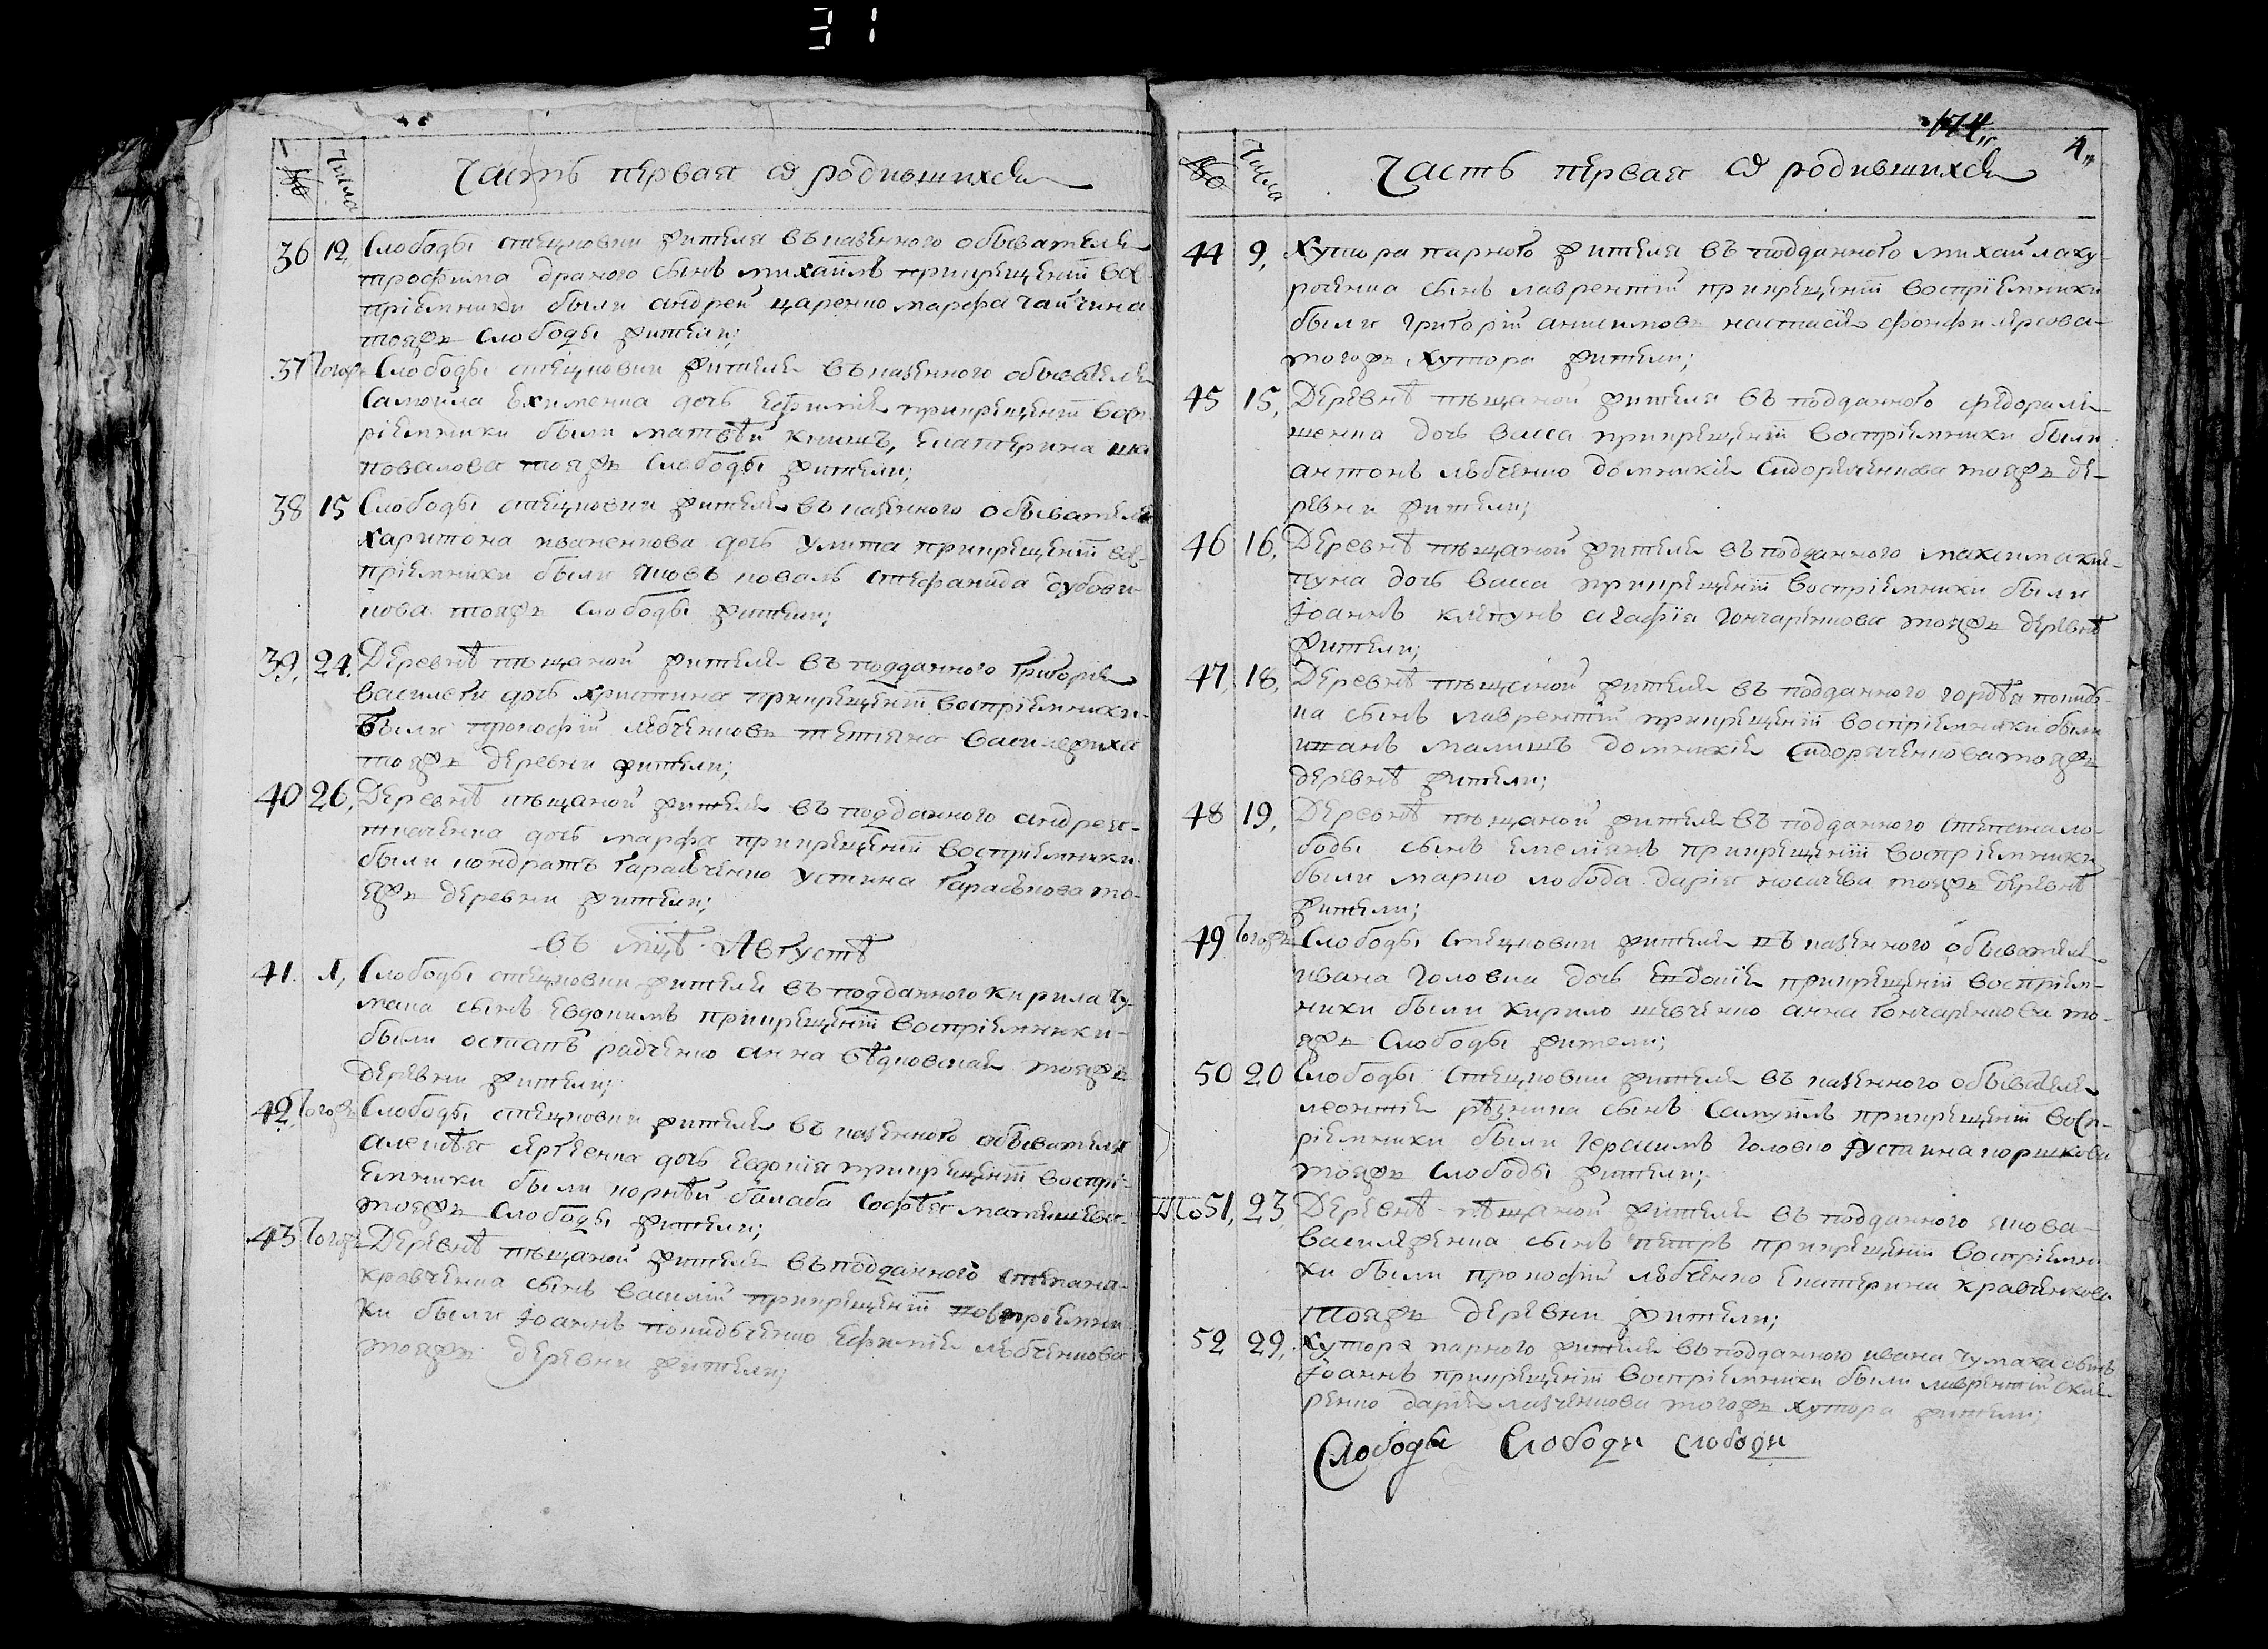 31
№ числа Часть первая ѿ родившихся
36 12, Слободы стецковки жителя въ казенного обывателя
трофима драного сынъ михаилъ прикрещенїи вос-
прїемники были андрей царенко марфа чайчина
тояжъ Слободы жители;
37 тогожъ Слободы стецковки жителя въ казенного обывателя
Самоила Ехименка дочь Ефимїя прикрещенїи восп
рїемники были матвѣй книшъ, Екатерина ша
повалова тояжъ Слободы жители;
38 15 Слободы стецковки жителя въ казенного обывателя
харитона иваненкова дочь Улита прикрещенїи вос-
прїемники были яковъ коваль Стефанида дубови-
кова тояжъ Слободы жители;
39, 24. Деревнѣ пѣщаной жителя въ подданного Григорїя
василеги дочь христина прикрещенїи воспрїемники
были прокофїй лѣбченковъ тетяна василежиха
тояжъ деревни жители;
40 26, Деревнѣ пѣщаной жителя въ подданного андрея
ткаченка дочь марфа прикрещенїи воспрїемники
были кондратъ Гарасѣченко Устина Гарасѣкова то-
яжъ деревни жители;
въ мцѣ Августѣ
41. 1, Слободы стецковки жителя въ подданного кирила чу-
мака сынъ Евдокимъ прикрещенїи воспрїемники
были остапъ радченко анна бѣдковская тояжъ
деревни жители;
42, тогожъ Слободы стецковки жителя въ казенного обывателя
алексѣя дочь Евдокїя прикрещенїи воспрї-
емники были корнѣй балаба Софѣя
тояжъ Слободы жители;
43 тогожъ Деревнѣ пѣщаной жителя въ подданного степана
кравченка сынъ василїй прикрещенїи воспрїемни
ки были Іоаннъ Ефимїя лѣбченкова
тояжъ деревни жители;
174,, 4,,
№ числа Часть первая ѿ родившихся
44 9, Хутора парного жителя въ подданного михайла ку-
роченка сынъ лаврентїй прикрещенїи воспрїемники
были григорїй анисимовъ настасїя
тогожъ хутора жители;
45 15, Деревнѣ пѣщаной жителя въ подданного федора ля-
шенка дочь васса прикрещенїи воспрїемники были
антонъ лѣбченко домникїя Сидоряченкова тояжъ де-
ревни жители;
46 16, Деревнѣ пѣщаной жителя въ подданного максима кля-
пуна дочь васса прикрещенїи воспрїемники были
Іоаннъ кляпунъ агафїя гончаренкова тояжъ деревнѣ
жители;
47, 18, Деревнѣ пѣщаной жителя въ подданного гордѣя
ка сынъ лаврентїй прикрещенїи воспрїемники были
малишъ домникїя Сидоряченкова тояжъ
деревнѣ жители;
48 19, Деревнѣ пѣщаной жителя въ подданного степана ло-
боды сынъ емелїанъ прикрещенїи воспрїемники
были марко лобода дарїя носачева тояжъ деревнѣ
жители;
49 тогожъ Слободы стецковки жителя въ казенного обывателя
ивана головка дочь Евдокїя прикрещенїи воспрїем-
ники были кирило шевченко анна гончаренкова то-
яжъ Слободы жители;
50 20 Слободы Стецковки жителя въ казенного обывателя
леонтїя рѣзника сынъ Самуилъ прикрещенїи восп-
рїемники были герасимъ головко Іустина коршкова
тояжъ Слободы жители;
51, 23 Деревнѣ пѣщаной жителя въ подданного якова
василяженка сынъ петръ прикрещенїи воспрїемни
ки были прокофїй лѣбченко Екатерина кравченкова
тояжъ деревни жители;
52 29, Хутора парного жителя въ подданного ивана чумака сынъ
Іоаннъ прикрещенїи воспрїемники были лаврентїй скля-
ренко дарїя лазченкова тогожъ хутора жители;
Слободы Слободы слободы